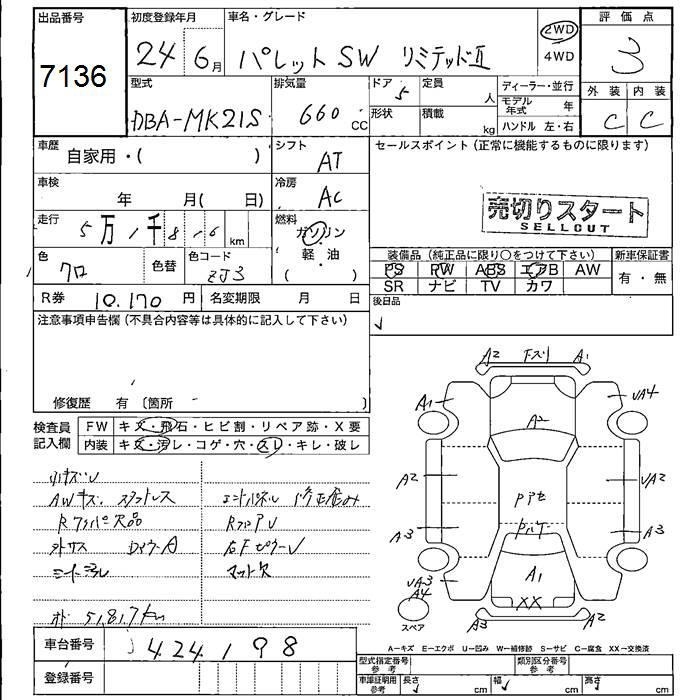 出品番号 初度登録年月 車名・グレード 評価点
7136 24 6月 パレットSW リミテッドⅡ 2WD 4WD 3
型式 排気量 ドア 定員 ディーラー・並行 外装 内装
DBA-MK21S 660 CC 5 人 モデル年式 年 C C
形状 積載 kg ハンドル 左・右
車歴 自家用・( ) シフト AT セールスポイント (正常に機能するものに限ります)
車検 年 月( 日) 冷房 AC
売切りスタート
SELLOUT
走行 5万1千816 km 燃料 ガソリン・軽油 ( )
色 クロ 色替 色コード ZJ3
装備品 (純正品に限り○をつけて下さい) 新車保証書
PS PW ABS エアB AW 有・無
SR ナビ TV カワ
R券 10.170 円 名変期限 月 日 後日品
注意事項申告欄 (不具合内容等は具体的に記入して下さい)
修復歴 有 〔箇所 〕
検査員記入欄 FW キズ・飛石・ヒビ割・リペア跡・X要
内装 キズ・汚レ・コゲ・穴・スレ・キレ・破レ
A2 下スリ A1
A1 UA4
A2
A2 UA2
A3 A3
A1
XX
UA3 A4
A3 A2
スペア
小キズU
AWキズ スタットレス
Rワイパー欠品 RフェンアU
シート汚レ マット欠
51,817km
A－キズ E－エクボ U－凹み W－補修跡 S－サビ C－腐食 XX－交換済
車台番号 424198
登録番号
型式指定番号 参考 類別区分番号 参考
車庫証明用 参考 長さ cm 幅 cm 高さ cm